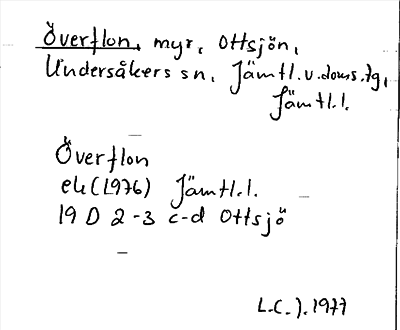 Överflon, myr, Ottsjön,
Undersåkers sn, Jämtl.v.doms.tg,
Jämtl.l.
Överflon
ek (1976) Jämtl.l.
19 D 2-3 c-d Ottsjö
L.C.J. 1977